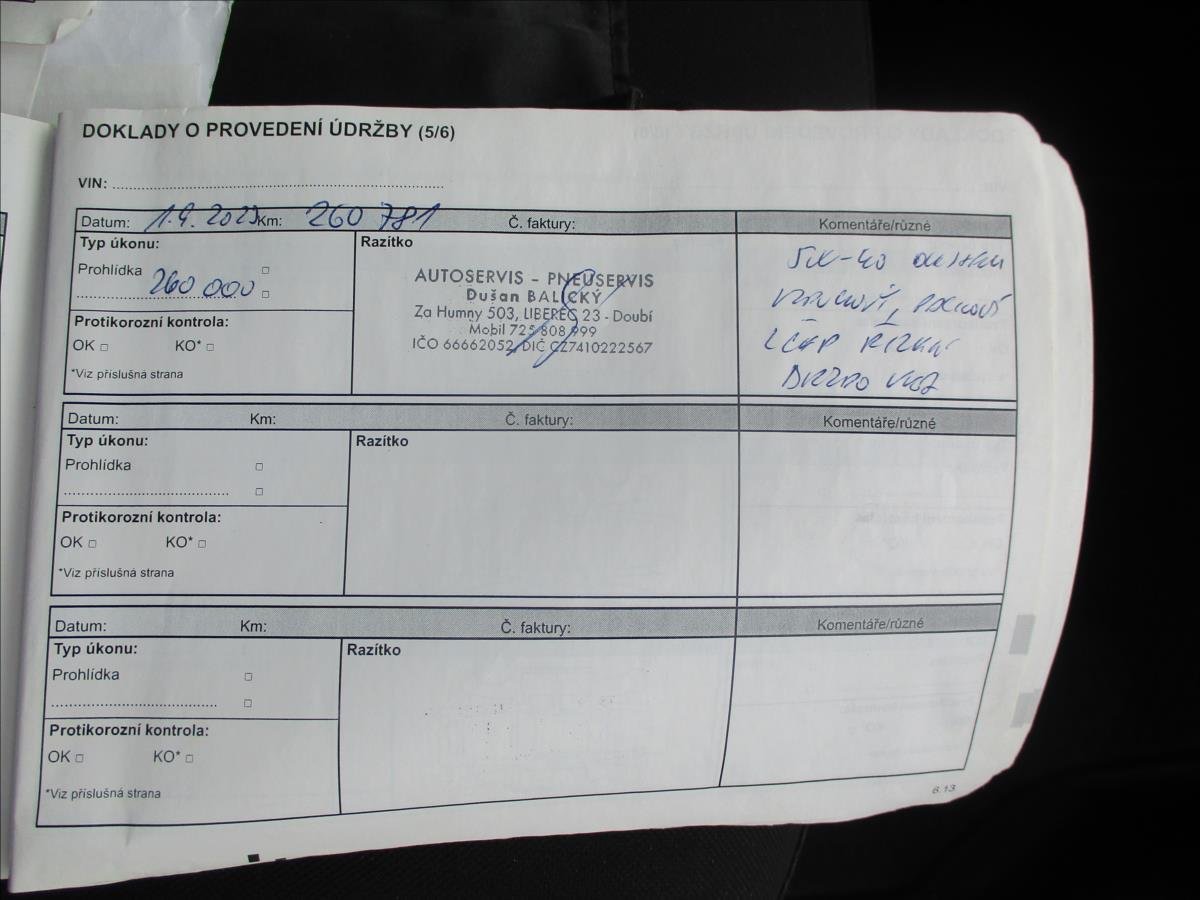 DOKLADY O PROVEDENÍ ÚDRŽBY (5/6)
VIN:
Datum: 1.9. 2023 Km: 260 781 Č. faktury: Komentáře/různé
Typ úkonu:
Prohlídka
260 000
Protikorozní kontrola:
OK KO*
*Viz příslušná strana
Razítko
AUTOSERVIS - PNEUSERVIS
Dušan BALICKÝ
Za Humny 503, LIBEREC 23 - Doubí
Mobil 725 808 999
IČO 66662052, DIČ CZ7410222567
5W-40
Datum: Km: Č. faktury: Komentáře/různé
Typ úkonu:
Prohlídka
Protikorozní kontrola:
OK KO*
*Viz příslušná strana
Razítko
Datum: Km: Č. faktury: Komentáře/různé
Typ úkonu:
Prohlídka
Protikorozní kontrola:
OK KO*
*Viz příslušná strana
Razítko
6.13